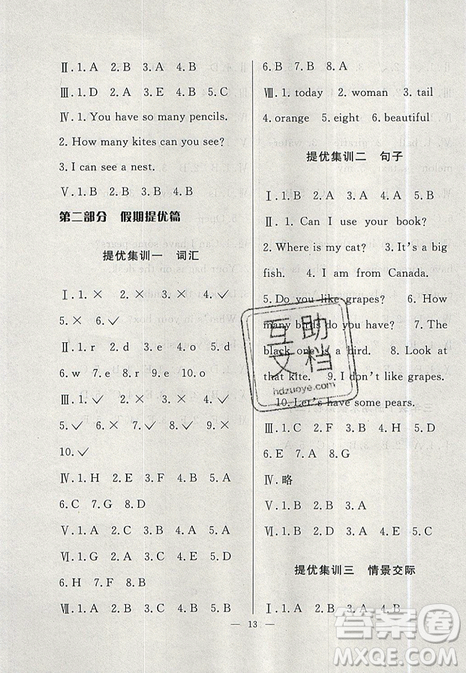 Ⅱ. 1. A 2. B 3. A 4. B
Ⅲ. 1. D 2. A 3. E 4. B 5. C
Ⅳ. 1. You have so many pencils.
2. How many kites can you see?
3. I can see a nest.
Ⅴ. 1. B 2. B 3. A 4. B 5. B
第二部分 假期提优篇
提优集训一 词汇
Ⅰ. 1. × 2. × 3. × 4. ✓
5. × 6. ✓
Ⅱ. 1. r 2. d 3. e 4. i 5. e
6. w 7. e 8. r 9. e 10. o
Ⅲ. 1. × 2. ✓ 3. × 4. × 5. ✓
6. ✓ 7. × 8. × 9. ✓
10. ✓
Ⅳ. 1. H 2. E 3. B 4. I 5. A
6. C 7. J 8. D 9. G 10. F
Ⅴ. 1. B 2. B 3. A 4. B 5. A
Ⅵ. 1. G 2. D 3. C 4. A 5. E
6. F 7. H 8. B
Ⅶ. 1. B 2. A 3. B 4. A 5. A
6. B 7. B 8. A
Ⅷ. 1. today 2. woman 3. tail
4. orange 5. eight 6. beautiful
提优集训二 句子
Ⅰ. 1. B 2. B 3. A 4. B 5. A
Ⅱ. 1. Can I use your book?
2. Where is my cat? 3. It's a big
fish. 4. I am from Canada.
5. Do you like grapes? 6. How
many birds do you have? 7. The
black one is a bird. 8. Look at
that kite. 9. I don't like grapes.
10. Let's have some pears.
Ⅲ. 1. D 2. E 3. A 4. C 5. B
6. F 7. G
Ⅳ. 略
Ⅴ. 1. B 2. B 3. A 4. B
Ⅵ. 1. C 2. A 3. D 4. B
提优集训三 情景交际
Ⅰ. 1. B 2. A 3. A 4. B 5. A
— 13 —
互助文档
hdzuoye.com
答案圈
MXQE.COM